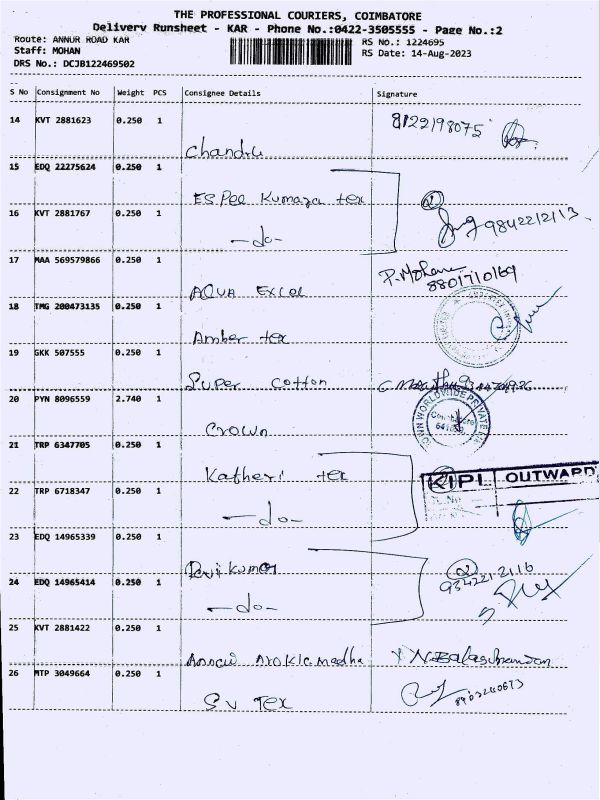 THE PROFESSIONAL COURIERS, COIMBATORE
Delivery Runsheet - KAR - Phone No.:0422-3505555 - Page No.:2
Route: ANNUR ROAD KAR RS No.: 1224695
Staff: MOHAN RS Date: 14-Aug-2023
DRS No.: DCJB122469502
S No Consignment No Weight PCS Consignee Details Signature
14 KVT 2881623 0.250 1 Chandru 8122198075
15 EDQ 22275624 0.250 1 ES Pee Kumara tex 2
16 KVT 2881767 0.250 1 -do- 9842212113
17 MAA 569579866 0.250 1 AQUA EXCEL P. Mohana 8801710169
18 TMG 200473135 0.250 1 Amber tex
19 GKK 507555 0.250 1 Super Cotton
20 PYN 8096559 2.740 1 Crown
21 TRP 6347705 0.250 1 Katheri tex KIPL OUTWARD
22 TRP 6718347 0.250 1 -do-
23 EDQ 14965339 0.250 1 Ravikumar 2
24 EDQ 14965414 0.250 1 -do- 9342212116
25 KVT 2881422 0.250 1 Annai Arokia madha
26 MTP 3049664 0.250 1 SV Tex